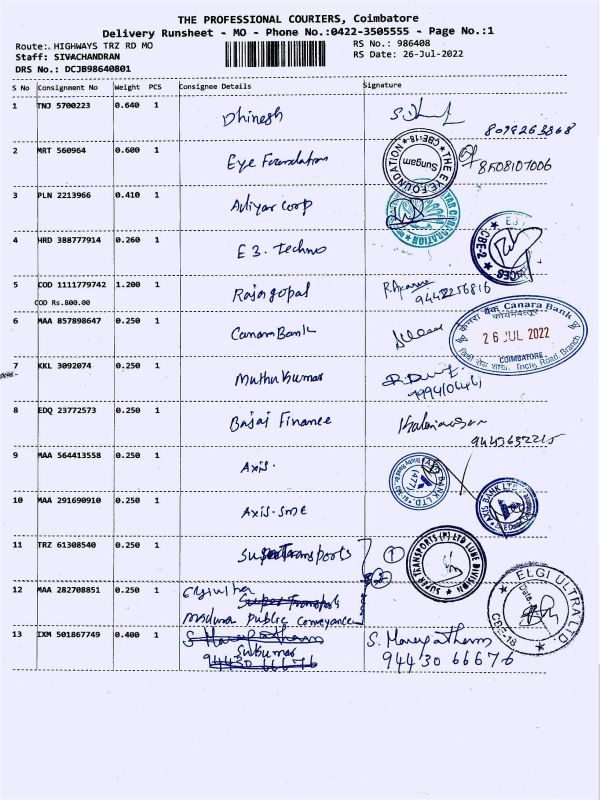 THE PROFESSIONAL COURIERS, Coimbatore
Delivery Runsheet - MO - Phone No.:0422-3505555 - Page No.:1
Route: HIGHWAYS TRZ RD MO
RS No.: 986408
Staff: SIVACHANDRAN
RS Date: 26-Jul-2022
DRS No.: DCJB98640801
S No Consignment No Weight PCS Consignee Details Signature
1 TNJ 5700223 0.640 1 Dhinesh
2 MRT 560964 0.600 1 Eye Foundation THE EYE FOUNDATION Sungam CBE-18 8508107006
3 PLN 2213966 0.410 1 Adiyar Corp
4 HRD 388777914 0.260 1 E3. Techno CBE-2
5 COD 1111779742 1.200 1 Rajagopal 9442256816
COD Rs.800.00
6 MAA 857898647 0.250 1 Canara Bank केनरा बैंक Canara Bank
26 JUL 2022
COIMBATORE
Trichy Road Branch
7 KKL 3092074 0.250 1 Muthukumar
8 EDQ 23772573 0.250 1 Bajaj Finance
9 MAA 564413558 0.250 1 Axis. AXIS BANK LTD
10 MAA 291690910 0.250 1 Axis-SME AXIS BANK LTD
11 TRZ 61308540 0.250 1 Super Transports 1 SUPER TRANSPORTS (P) LTD LUBE DIVISION
12 MAA 282708851 0.250 1
Super Transports
Madura Public Conveyance
ELGI ULTRA LTD
CBE-18
13 IXM 501867749 0.400 1
Sukumar
94430 66676
94430 66676